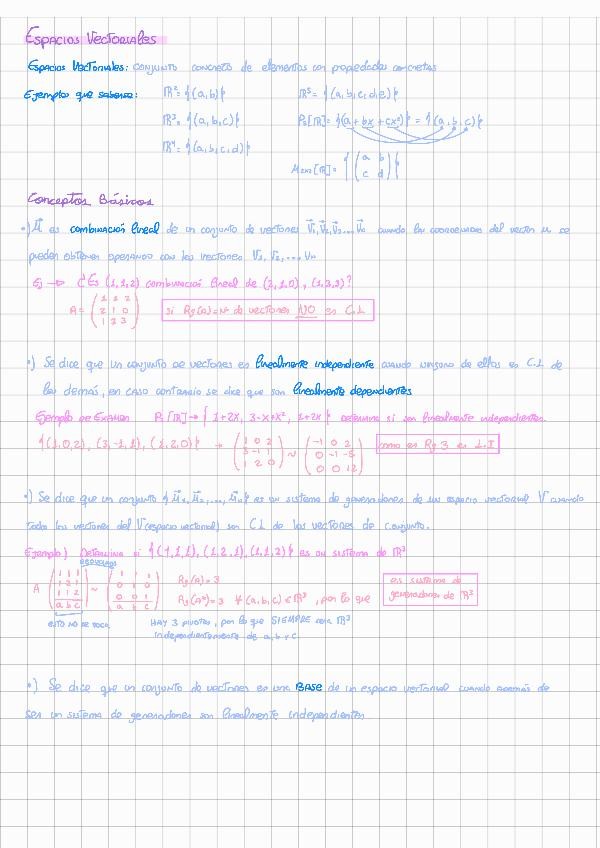 Espacios Vectoriales
Espacios Vectoriales: conjunto concreto de elementos con propiedades concretas
Ejemplos que sabemos: ℝ² = {(a,b)} ℝ⁵ = {(a,b,c,d,e)}
ℝ³ = {(a,b,c)} P₂[ℝ] = {(a + bx + cx²)} = {(a,b,c)}
ℝ⁴ = {(a,b,c,d)}
M₂ₓ₂[ℝ] = {(a b
c d)}
Conceptos Básicos
•) u⃗ es combinación lineal de un conjunto de vectores v⃗₁, v⃗₂, v⃗₃... v⃗ₙ cuando las coordenadas del vector u se
pueden obtener operando con los vectores V₁, V₂, ... Vₙ
Ej → ¿Es (1,1,2) combinación lineal de (2,1,0), (1,3,3)?
A = (1 1 2
2 1 0
1 3 3)
si Rg(A) = Nº de vectores NO es C.L
•) Se dice que un conjunto de vectores es linealmente independiente cuando ninguno de ellos es C.L de
los demás, en caso contrario se dice que son linealmente dependientes
Ejemplo de Examen P₂[ℝ] → { 1+2x, 3-x+x², 1+2x } Determina si son linealmente independientes.
{(1,0,2), (3,-1,1), (1,2,0)} → (1 0 2
3 -1 1
1 2 0) ~ (-1 0 2
0 -1 -5
0 0 12)
como es Rg 3 es L.I
•) Se dice que un conjunto {u⃗₁, u⃗₂, ..., u⃗ₙ} es un sistema de generadores de un espacio vectorial V cuando
todos los vectores del V (espacio vectorial) son C.L de los vectores de conjunto.
Ejemplo) Determina si {(1,1,1), (1,2,1), (1,1,2)} es un sistema de ℝ³
A (1 1 1
1 2 1
1 1 2
a b c) ~ (1 1 1
0 1 0
0 0 1
a b c)
Rg(A) = 3
Rg(A*) = 3 ∀(a,b,c) ∈ ℝ³, por lo que
es sistema de
generadores de ℝ³
esto no se toca
HAY 3 pivotes, por lo que SIEMPRE será ℝ³
independientemente de a, b y c
•) Se dice que un conjunto de vectores es una BASE de un espacio vectorial cuando además de
ser un sistema de generadores son linealmente independientes